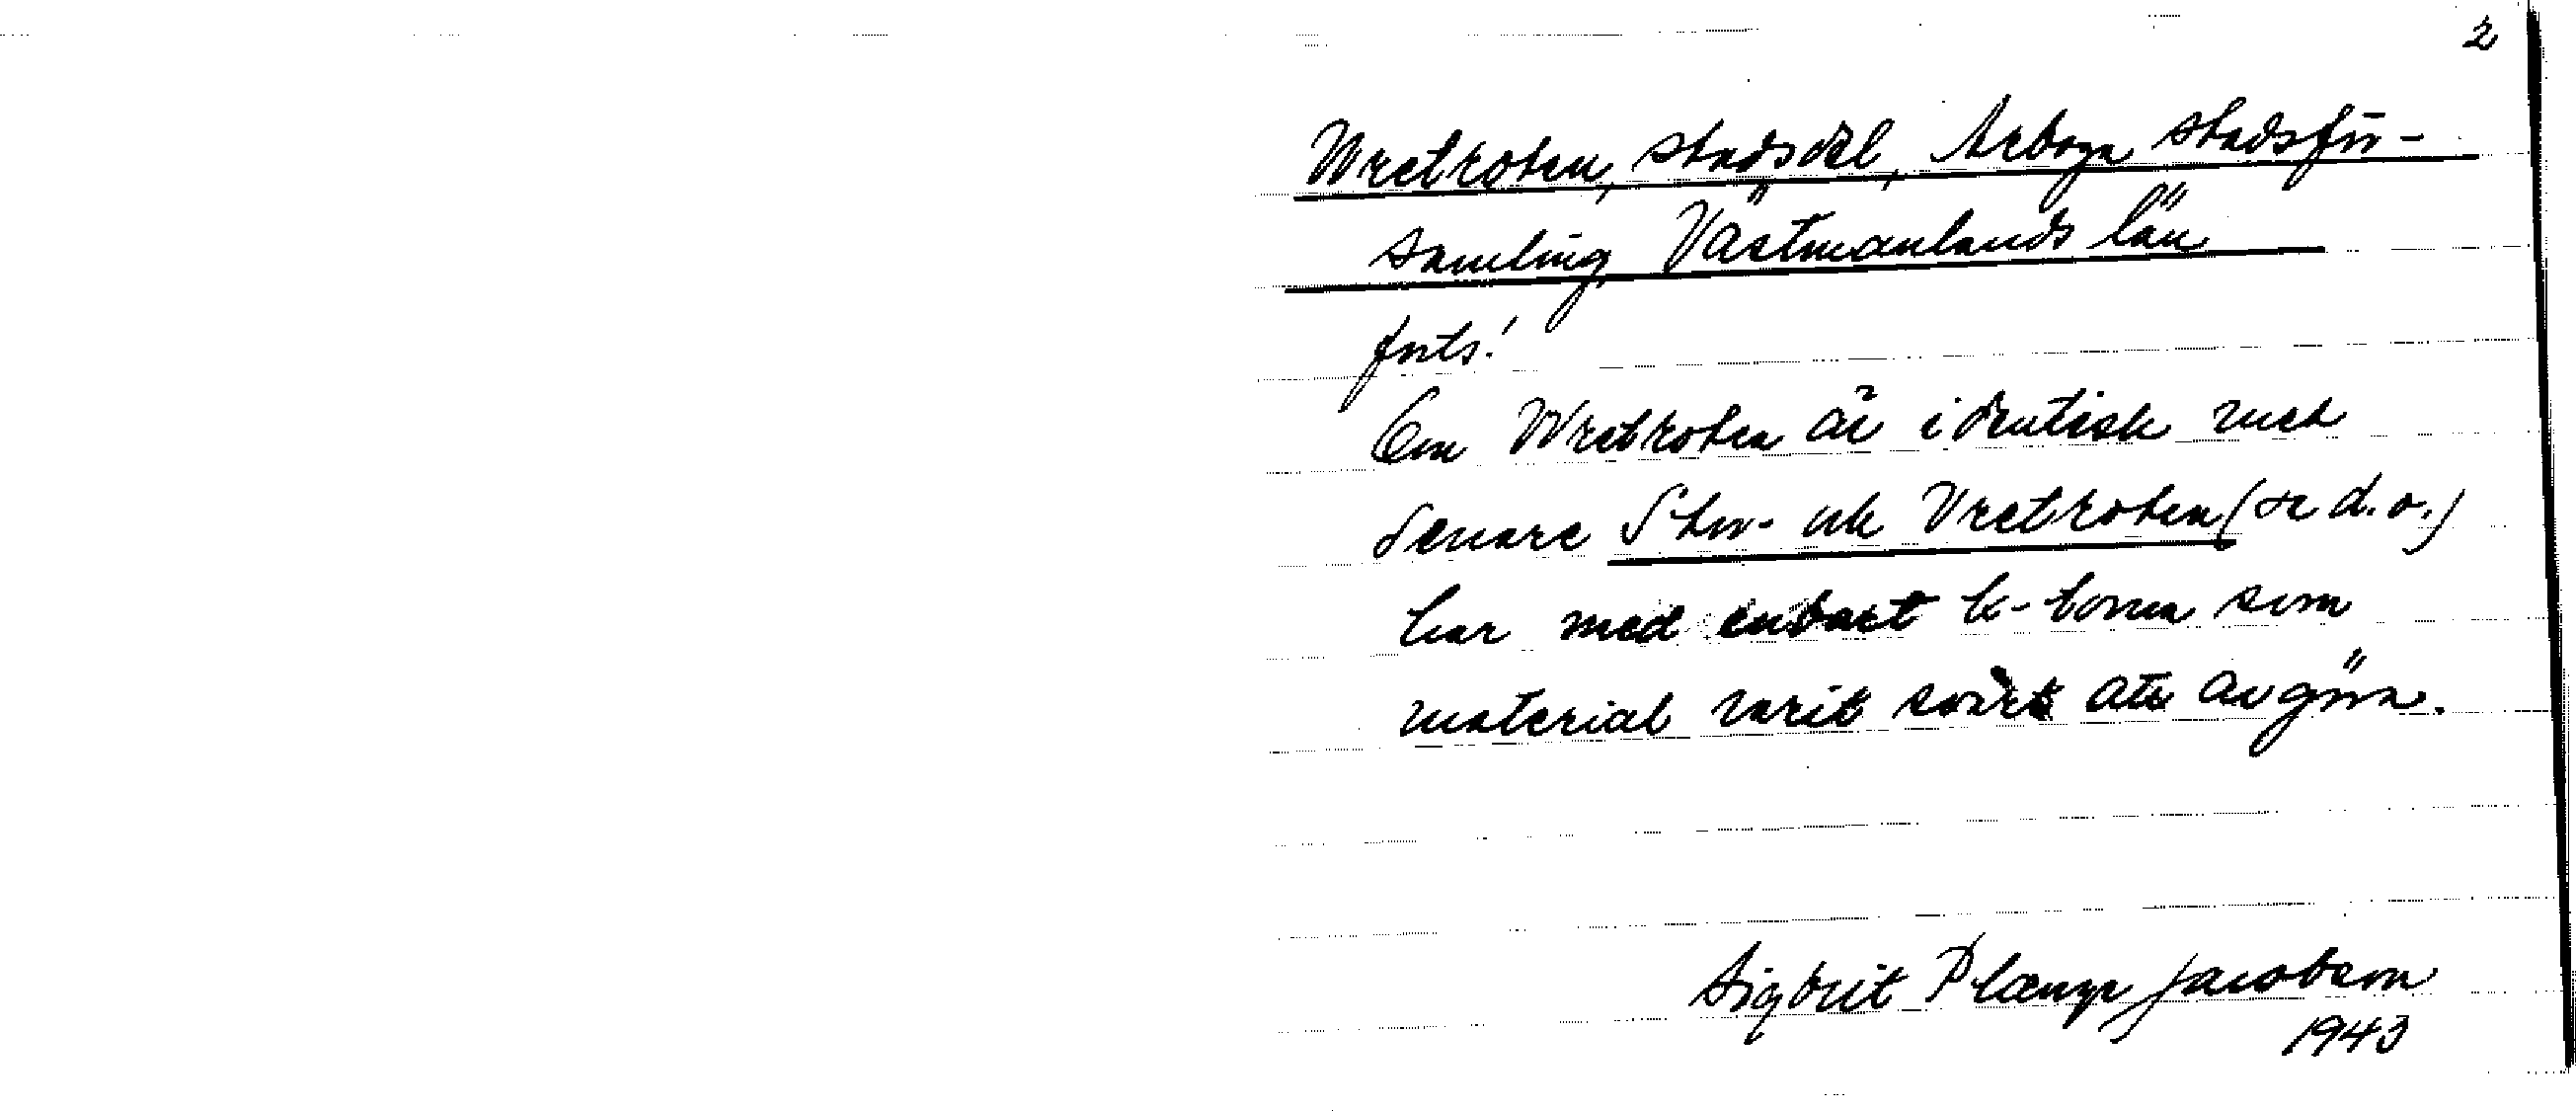 2
Wretroten, stadsdel, Arboga stadsför-
samling, Västmanlands län
forts.
Om Wretroten är identisk med
senare Stor- och Vretroten (se d.o.)
har med endast k-borna som
material varit svårt att avgöra.
Sigbrit Plænge Jacobson
1943